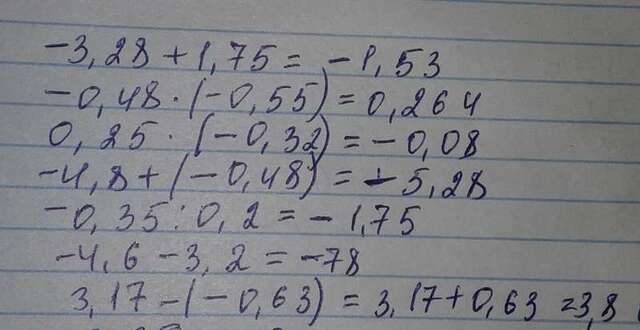 -3,28 + 1,75 = -1,53
-0,48 · (-0,55) = 0,264
0,25 · (-0,32) = -0,08
-4,8 + (-0,48) = -5,28
-0,35 : 0,2 = -1,75
-4,6 - 3,2 = -78
3,17 - (-0,63) = 3,17 + 0,63 = 3,8